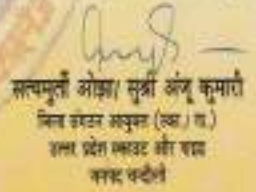 सत्यमूर्ती ओझा/ सुश्री अंजू कुमारी
जिला संगठन आयुक्त (स्का./ गा.)
उत्तर प्रदेश स्काउट और गाइड
जनपद चन्दौली